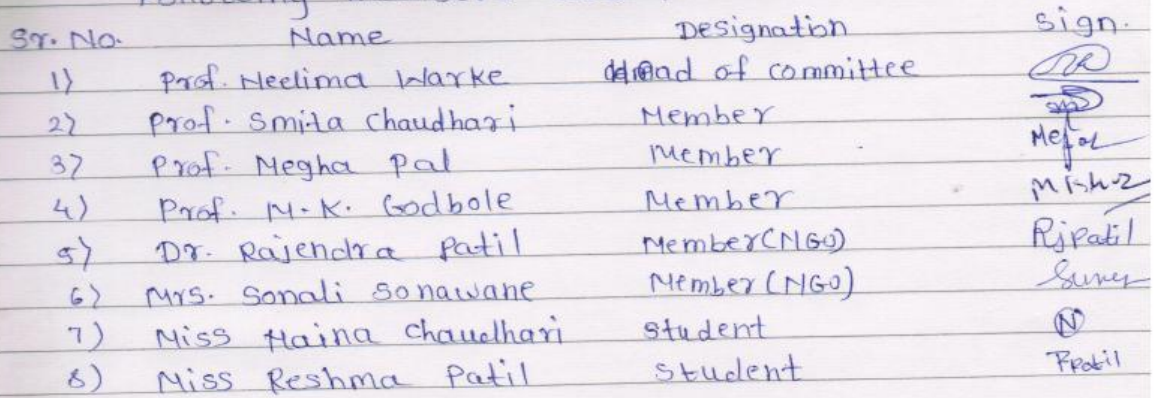 Sr. No. Name Designation Sign.
1) Prof. Neelima Warke Head of committee
2) Prof. Smita Chaudhari Member
3) Prof. Megha Pal Member
4) Prof. M. K. Godbole Member
5) Dr. Rajendra Patil Member (NGO) Rjpatil
6) Mrs. Sonali Sonawane Member (NGO)
7) Miss Naina Chaudhari Student N
8) Miss Reshma Patil Student Rpatil